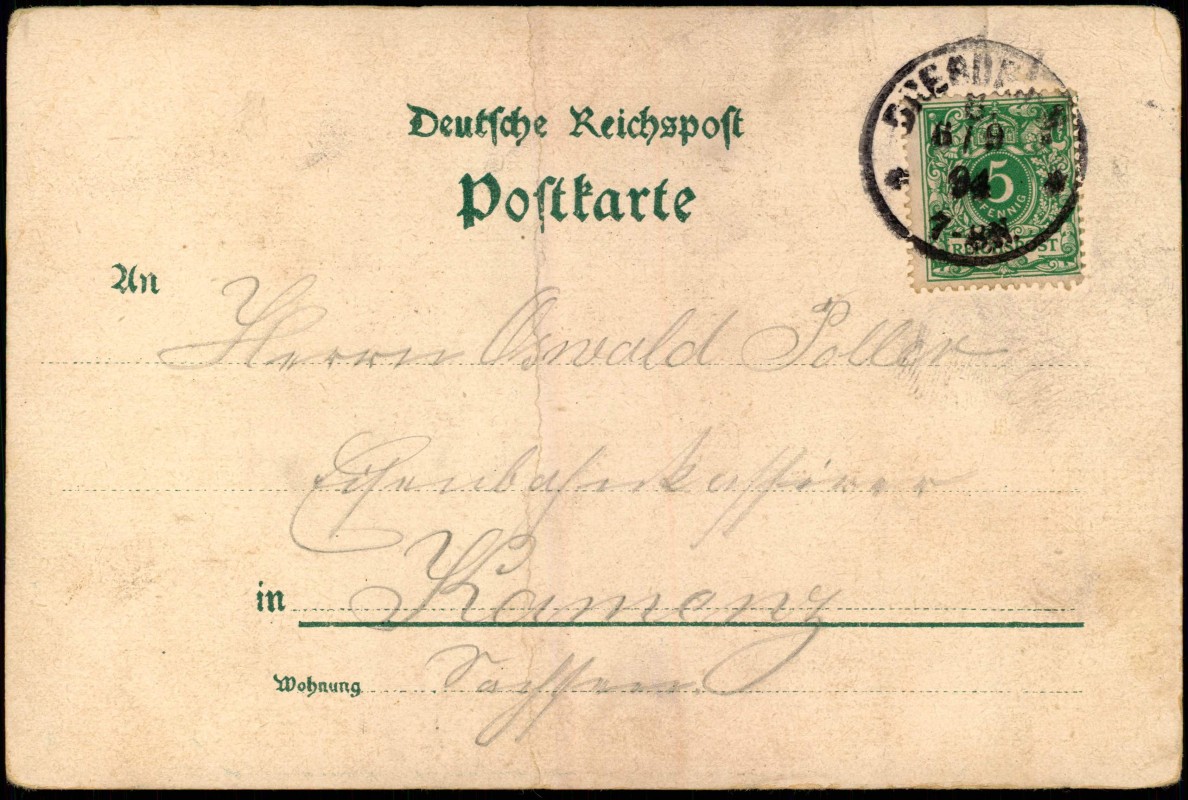 Deutsche Reichspost
Postkarte
DRESDEN
6/9
94
7-8N.
5
PFENNIG
REICHSPOST
An Herrn Oswald Poller
Eisenbahnkassirer
in Kamenz
Wohnung Sachsen